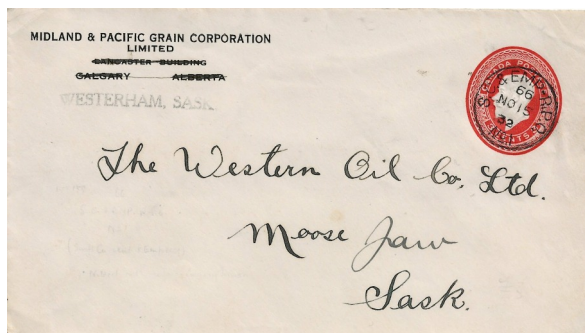 MIDLAND & PACIFIC GRAIN CORPORATION
LIMITED
LANCASTER BUILDING
CALGARY ALBERTA
WESTERHAM, SASK.
& EMP. R.P.O.
66
NO 15
32
The Western Oil Co, Ltd.
Moose Jaw
Sask.